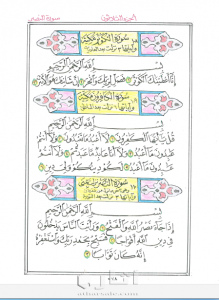 الجزء الثلاثون سورة النصر
سورة الكوثر مكية
بسم الله الرحمن الرحيم
إنا أعطينك الكوثر فصل لربك وانحر إن شانئك هو الأبتر
سورة الكافرون مكية
بسم الله الرحمن الرحيم
قل يأيها الكفرون لا أعبد ما تعبدون ولا أنتم
عبدون ما أعبد ولا أنا عابد ما عبدتم ولا أنتم
عبدون ما أعبد لكم دينكم ولي دين
سورة النصر
بسم الله الرحمن الرحيم
إذا جاء نصر الله والفتح ورأيت الناس يدخلون
في دين الله أفواجا فسبح بحمد ربك واستغفره
إنه كان توابا